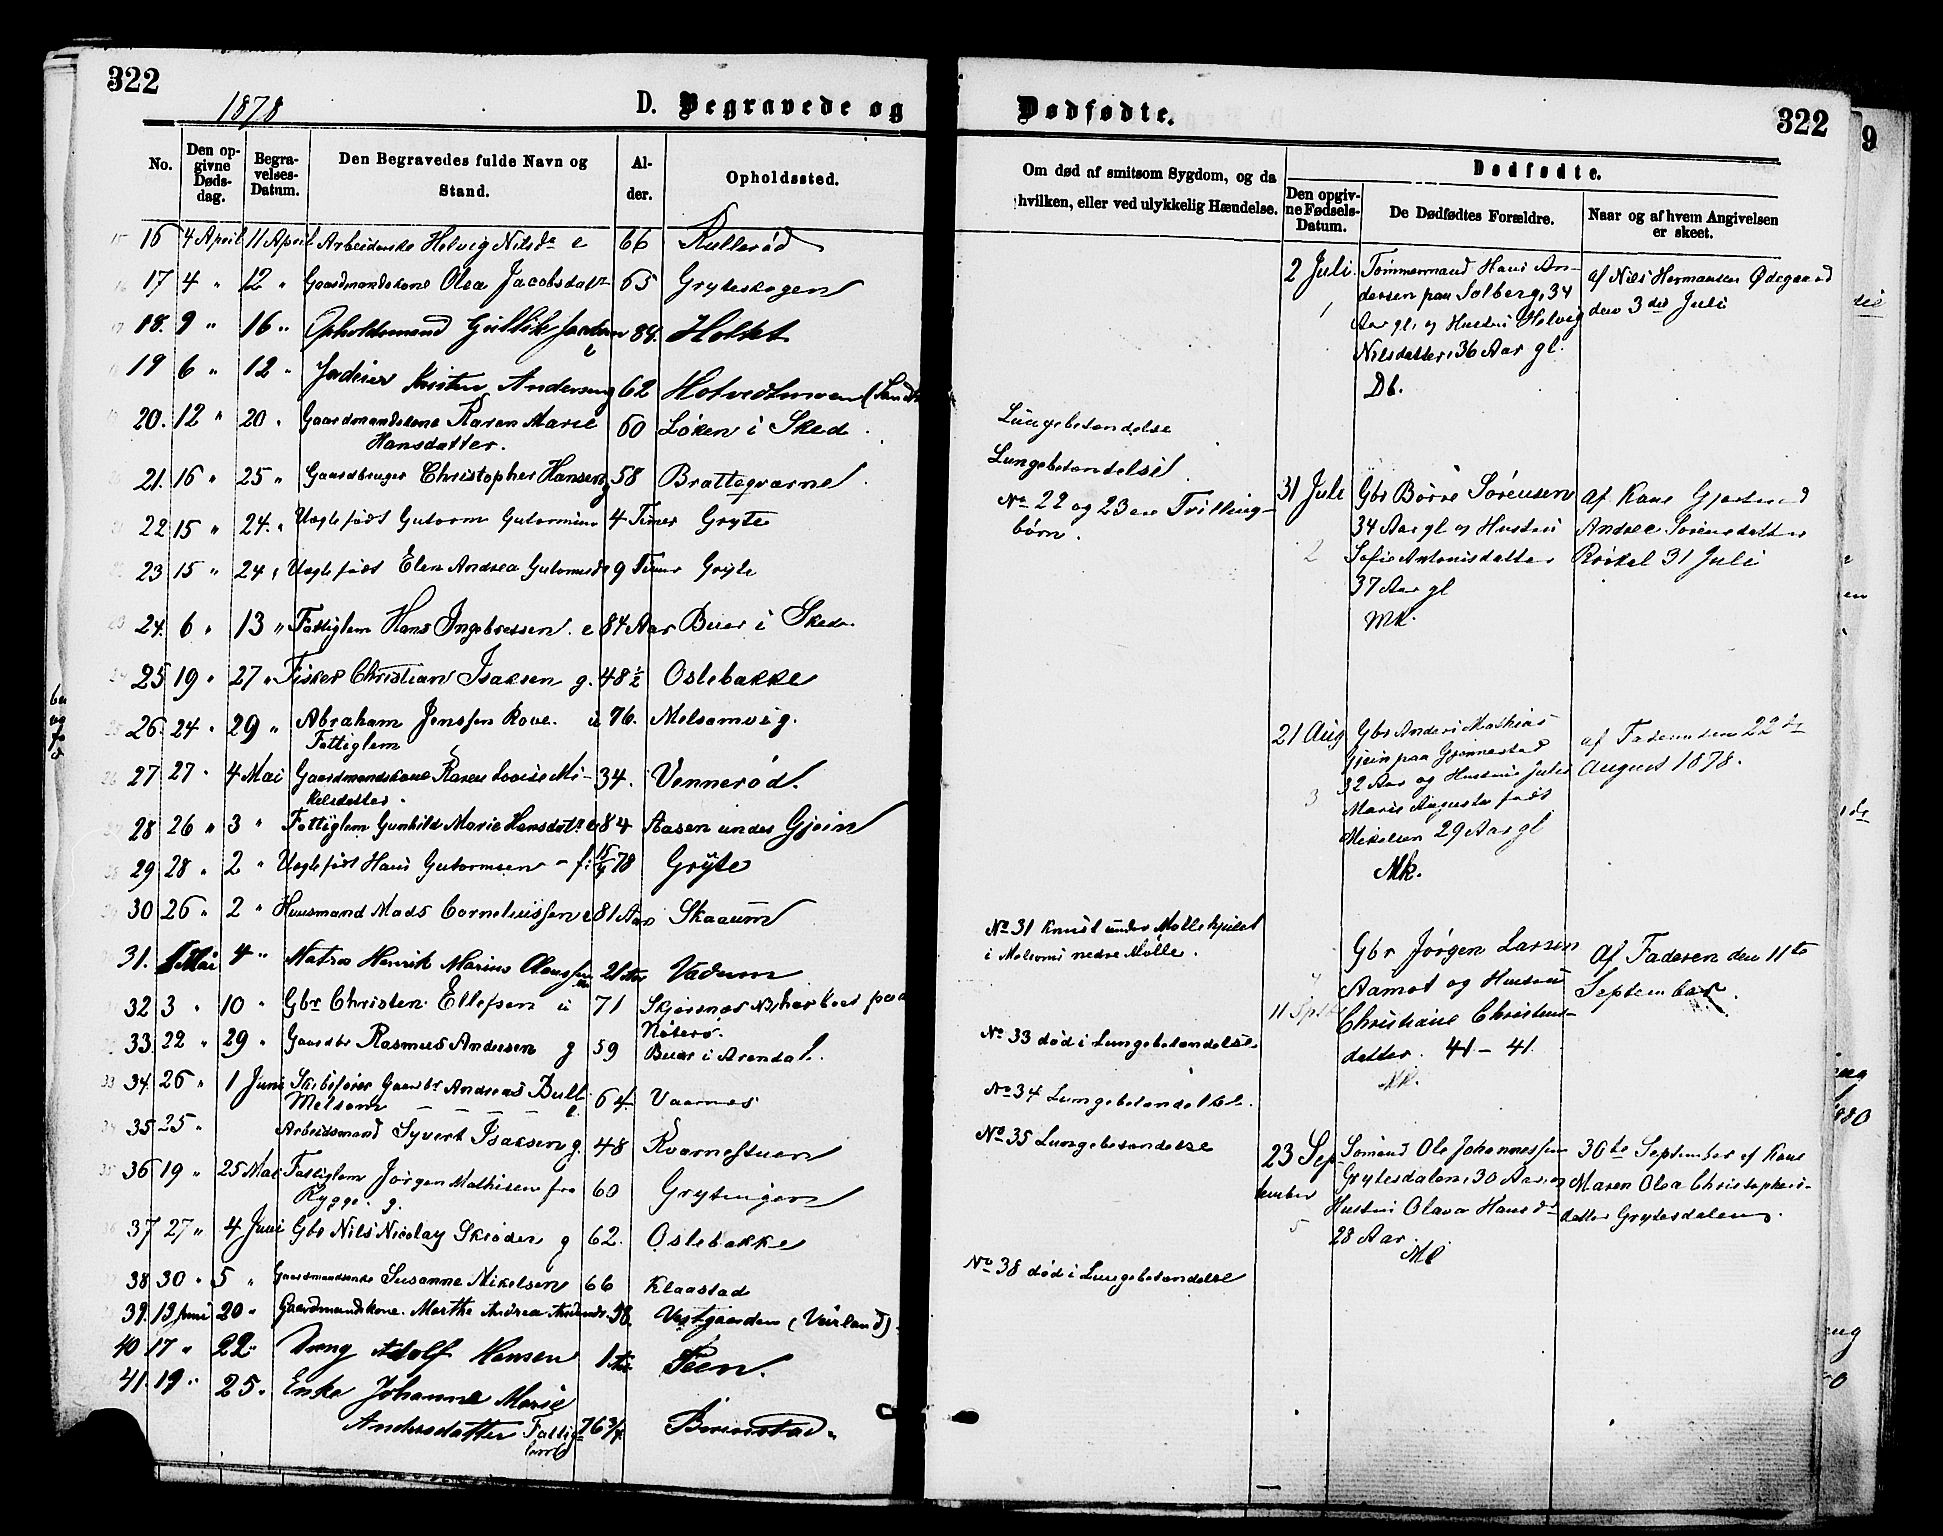 322
1878
D. Begravede og
No.
Den opgivne Dødsdag.
Begravelses-Datum.
Den Begravedes fulde Navn og Stand.
Alder.
Opholdssted.
16 4 April 11 April Arbeiderske Helvig Nilsdr e 66 Rullerød
17 4 " 12 " Gaardmandskone Olea Jacobsdatr 65 Gryteskogen
18. 9 " 16 " Opholdsmand Gullik 84. Holtet
19 6 " 12 " Inderst Anderseng 62 Holvedtmoen
20. 12 " 20 " Gaardmandskone Karen Marie 60 Løken i Sked
Hansdatter.
21. 16 " 25 " Gaardbruger Christopher Hansen g 58 Bratteqvarne
22 15 " 24. " Uægtefødt Gutorm Gutormsen 4 Timer Gryte
23 15 " 24 " Uægtefødt Elen Andrea 9 Timer Gryte
24. 6 " 13 " Fattiglem Hans Ingebretsen. e 84 Aar Buer i Skede
25 19 " 27 " Fisker Christian Isaksen g. 48½ Ostebakke
26. 24 " 29 " Abraham Jenssen Rove. u 76. Melsomvig.
Fattiglem
27 27 " 4 Mai Gaardmandskone Karen Lovise Mi- 34. Vennerød.
kelsdatter.
28 26 " 3 " Fattiglem Gunhild Marie Hansdatr e 84 Aasen under Gjein
29 28 " 2 " Uægtefødt Hans Gutormsen - f: 15/4 78 Gryte
30 26 " 2 " Huusmand Mads Corneliussen e 81 Aar Skaaum
31. 1 Mai 4 " Matros Henrik Marius 21 Aar Vadum
32 3 " 10 " Gbr Christen Ellefsen u 71 Skjersnæs NB, har boet paa
Nøterø.
33. 22 " 29 " Gaardbr Rasmus Andersen g 59 Buer i Arendal.
34. 26 " 1 Juni Skibsfører Gaardbr Andreas Bull 64. Vaarnæs
Melsom
35 25 " Arbeidsmand Syvert Isaksen g. 48 Kvarnestuen
36 19 " 25 Mai Fattiglem Jørgen Mathisen fra 60 Grytingen
Rygge. g.
37 27 " 4 Juni Gbr Nils Nicolay Skrøder g 62. Ostebakke
38. 30 " 5 " Gaardmandsenke Susanne Mikelsen 66 Klaastad
39. 13 Juni 20 " Gaardmandskone. Marthe Andrea 58. Vestgaarden (Veirland).
40 17 " 22 " Dreng Adolf Hansen 1 Aar Feen.
41. 19 " 25 " Enke Johanne Marie
Andersdatter Fattig- 76 ¾
lem
322
Dødfødte.
Om død af smitsom Sygdom, og da hvilken, eller ved ulykkelig Hændelse.
Dødfødte.
Den opgivne Fødsels-Datum.
De Dødfødtes Forældre.
Naar og af hvem Angivelsen er skeet.
Lungebetændelse
Lungebetændelse
No 22 og 23 ere Trilling-
børn.
No 31 knust under Møllehjulet
i Melsoms nedre Mølle.
No 33 død i Lungebetændelse.
No 34 Lungebetændelse.
No 35 Lungebetændelse
No 38 død i Lungebetændelse
2 Juli.
1
Tømmermand Hans An-
dersen paa Solberg, 34
Aar gl, og Hustru Helvig
Nilsdatter, 36 Aar gl.
Db.
af Nils Hermansen Ødegaard
den 3die Juli
31 Juli
2
Gbr Børre Sørensen
34 Aar gl og Hustru
Sofie Antonisdatter
37 Aar gl
Mk.
af Kone
Andrea Sørensdatter
Røkel 31 Juli
21 Aug
3
Gbr Anders Mathias
Gjein paa Gjønnestad
32 Aar og Hustru Julie
Marie Augusta født
Mikelsen 29 Aar gl
Mk.
af Faderen den 22de
August 1878.
11 Sptb
Gbr Jørgen Larsen
Aamot og Hustru
Christiane Christens-
datter. 41 - 41.
Mk.
Af Faderen den 11te
September.
23 Sep-
tember
5
Sømand Ole Johannessen
Grytesdalen, 30 Aar, og
Hustru Olava Hansdr
28 Aar.
Mk
30te September af Kone
Maren Olea Christophers-
datter Grytesdalen.
9